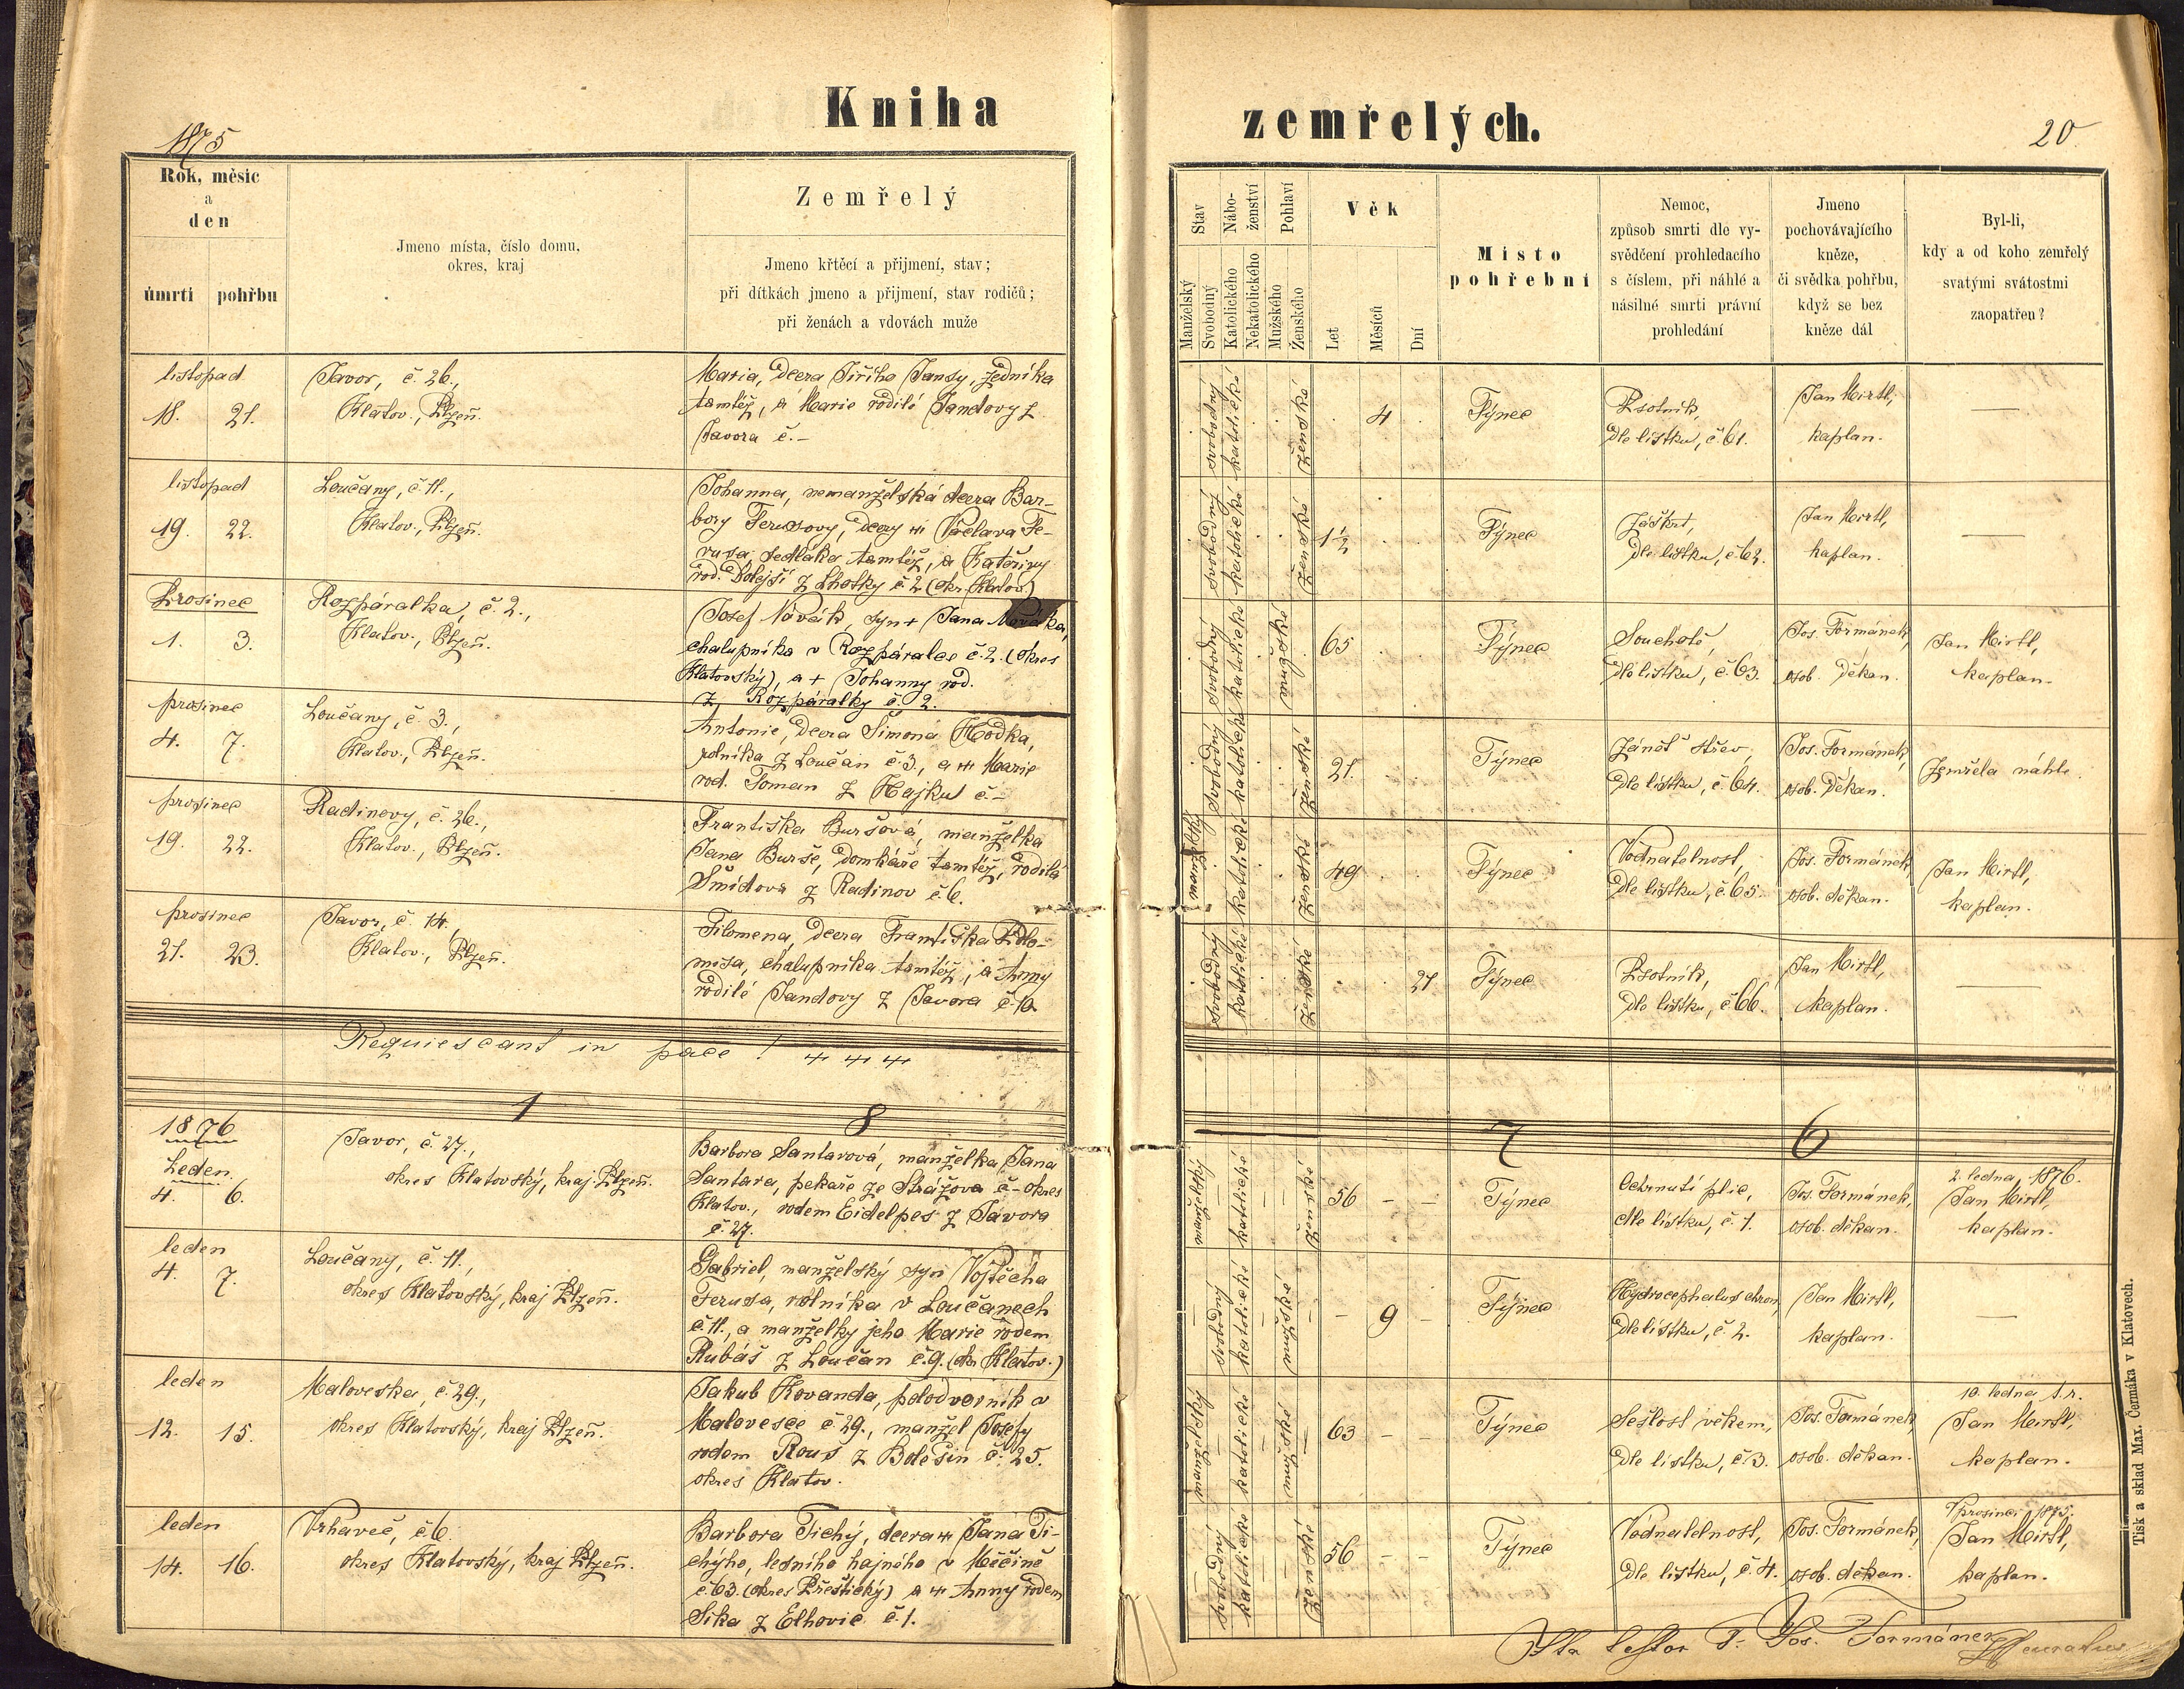 Kniha
zemřelých.
1875
20
Rok, měsíc
a
den
úmrtí
pohřbu
Jmeno místa, číslo domu,
okres, kraj
Zemřelý
Jmeno křtěcí a přijmení, stav;
při dítkách jmeno a přijmení, stav rodičů;
při ženách a vdovách muže
Stav
Manželský
Svobodný
Nábo-
ženství
Katolického
Nekatolického
Pohlaví
Mužského
Ženského
Věk
Let
Měsíců
Dní
Místo
pohřební
Nemoc,
způsob smrti dle vy-
svědčení prohledacího
s číslem, při náhlé a
násilné smrti právní
prohledání
Jmeno
pochovávajícího
kněze,
či svědka pohřbu,
když se bez
kněze dál
Byl-li,
kdy a od koho zemřelý
svatými svátostmi
zaopatřen?
listopad
18. 21.
Javor, č. 26.,
Klatov., Plzeň.
Maria, dcera Jiřího Jandy, zedníka
tamtéž, a Marie rodilé Jandovy z
Javora č. –
svobodný
katolické
ženské
4
Týnec
Psotník,
dle lístku, č 61.
Jan Mirtl,
kaplan.
—
listopad
19. 22.
Loučany, č. 11.,
Klatov., Plzeň.
Johanna, nemanželská dcera Bar-
bory Ferusovy, dcery Václava Fe-
rusa sedláka tamtéž, a Kateřiny
rod. Dolejší z Lhotky č 2 (okr. Klatov.)
svobodný
katolické
ženské
1½
Týnec
Záškrt,
dle lístku, č 62.
Jan Mirtl,
kaplan.
—
Prosinec
1. 3.
Rozpáralka, č. 2.,
Klatov., Plzeň.
Josef Novák, syn + Jana Nováka,
chalupníka v Rozpáralce č. 2. (okres
Klatovský), a + Johanny rod.
z Rozpáralky č. 2.
svobodný
katolické
mužské
65
Týnec
Souchotě,
dle lístku, č. 63.
Jos. Formánek,
osob. děkan.
Jan Mirtl,
kaplan.
prosinec
4. 7.
Loučany, č. 3.,
Klatov., Plzeň.
Antonie, dcera Šimona Hodka,
rolníka z Loučan č. 3., a Marie
rod. Toman z Hajku č. –
svobodný
katolické
ženské
21.
Týnec
Zánět střev,
dle lístku, č. 64.
Jos. Formánek,
osob. děkan.
Zemřela náhle.
prosinec
19. 22.
Radinovy, č. 26.,
Klatov., Plzeň.
Františka Buršová, manželka
Jana Burše, domkáře tamtéž, rodilá
Šmídova z Radinov č 6.
manželský
katolické
ženské
49
Týnec
Vodnatelnost,
dle lístku, č. 65.
Jos. Formánek,
osob. děkan.
Jan Mirtl,
kaplan.
prosinec
21. 23.
Javor, č. 14.,
Klatov., Plzeň.
Filomena, dcera Františka
chalupníka tamtéž, a Anny
rodilé Jandovy z Javora č. 10
svobodný
katolické
ženské
21
Týnec
Psotník,
dle lístku, č 66.
Jan Mirtl,
kaplan.
—
Requiescant in pace!
1 8 7 6
1876
Leden.
4. 6.
Javor, č. 27.,
okres Klatovský, kraj Plzeň.
Barbora Santarová, manželka Jana
Santara, pekaře ze Strážova č – okres
Klatov., rodem Eidelpes z Javora
č. 27.
manželský
katolické
ženské
56 – –
Týnec
Ochrnutí plic,
dle lístku, č. 1.
Jos. Formánek,
osob. děkan.
2. ledna 1876.
Jan Mirtl,
kaplan.
leden
4. 7.
Loučany, č. 11.,
okres Klatovský, kraj Plzeň.
Gabriel, manželský syn Vojtěcha
Ferusa, rolníka v Loučanech
č. 11., a manželky jeho Marie rodem
Rubáš z Loučan č. 9. (okr. Klatov.)
svobodný
katolické
mužské
– 9 –
Týnec
Hydrocephalus chron,
dle lístku, č. 2.
Jan Mirtl,
kaplan.
—
leden
12. 15.
Maloveska, č. 29.,
okres Klatovský, kraj Plzeň.
Jakub Kovanda, polodvorník v
Malovesce č 29., manžel Josefy
rodem Rous z Bolešin č. 25.
okres Klatov.
manželský
katolické
mužské
63 – –
Týnec
Sešlost věkem,
dle lístku, č 3.
Jos. Formánek,
osob. děkan.
10. ledna t. r.
Jan Mirtl,
kaplan.
leden
14. 16.
Vrhaveč, č 6.
okres Klatovský, kraj Plzeň.
Barbora Tichý, dcera Jana Ti-
chýho, lesního hajného v Měčíně
č 63. (okres Přeštický) a Anny rodem
Sika z Elhovic č. 1.
svobodný
katolické
ženské
56 – –
Týnec
Vodnatelnost,
dle lístku, č. 4.
Jos. Formánek,
osob. děkan.
V prosinci 1875.
Jan Mirtl,
kaplan.
Ita testor P. Jos. Formánek
Tisk a sklad Max. Čermáka v Klatovech.